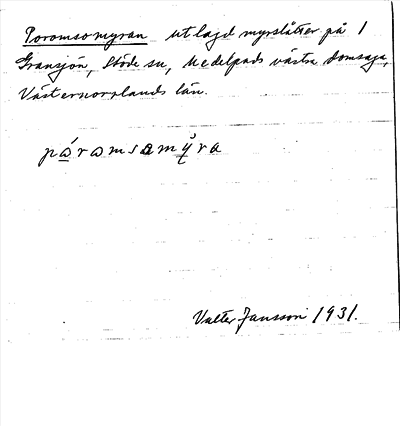 Poromsomyran utlagd myrslåtter på 1
Gransjön, Stöde sn, Medelpads västra domsaga,
Västernorrlands län.
påromsamy̆ra
Valter Jansson 1931.